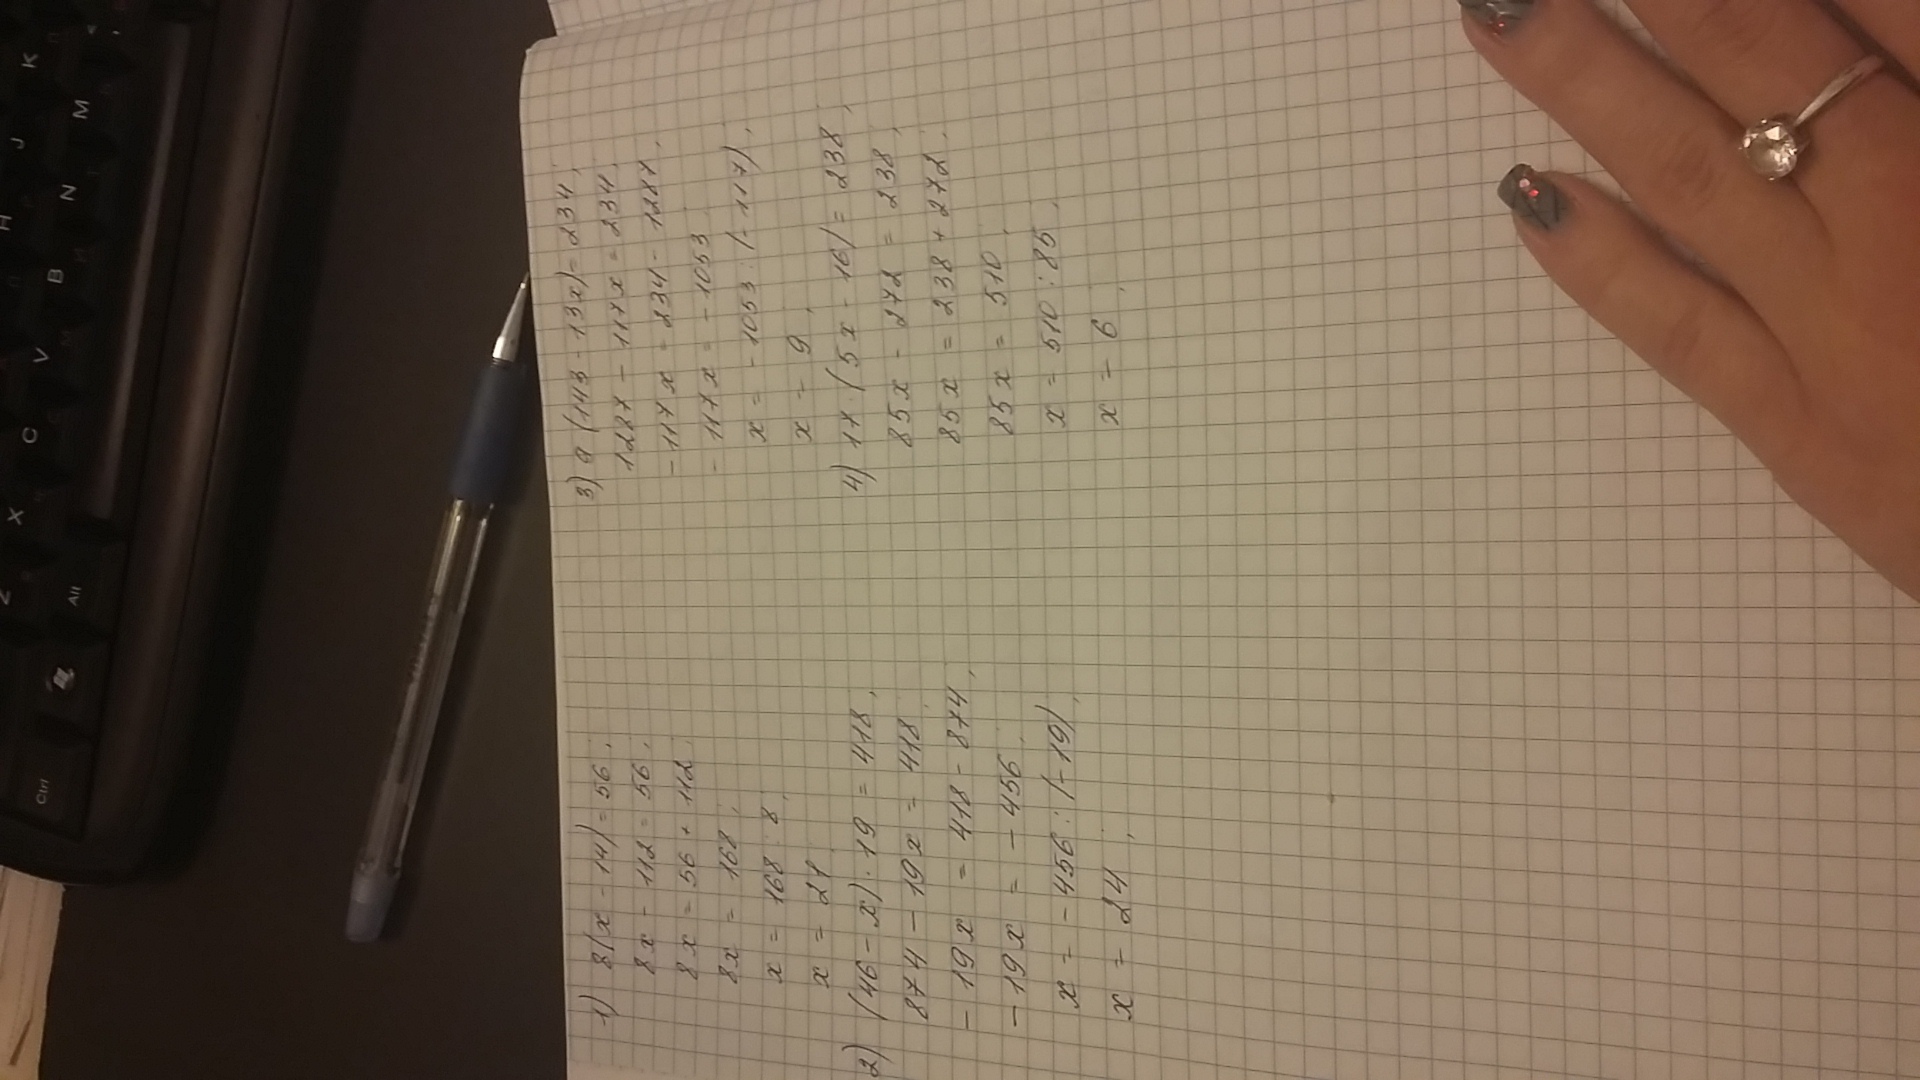 1) 8(x - 14) = 56,
8x - 112 = 56,
8x = 56 + 112,
8x = 168,
x = 168 : 8,
x = 21
2) (46 - x) · 19 = 418,
874 - 19x = 418,
- 19x = 418 - 874,
- 19x = - 456,
x = - 456 : (-19),
x = 24,
3) 9 (143 - 13x) = 234,
1287 - 117x = 234,
- 117x = 234 - 1287,
- 117x = - 1053
x = - 1053 : (- 117),
x = 9,
4) 17 · (5x - 16) = 238,
85x - 272 = 238,
85x = 238 + 272,
85x = 510,
x = 510 : 85,
x = 6,
H J K
X C V B N M
Z
Ctrl
Alt